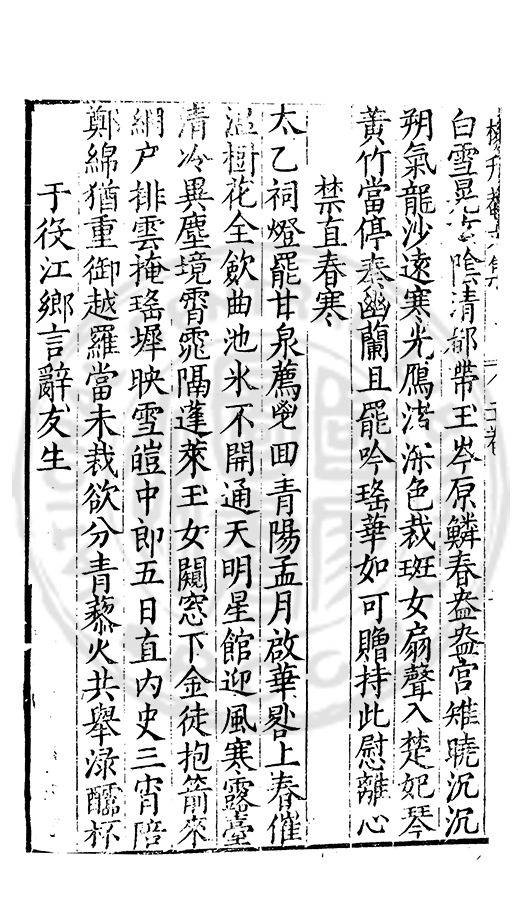 白雪晃玄陰清都帶玉岑原鱗春盎盎宮雉曉沉沉
朔氣龍沙遠寒光鴈渚深色裁班女扇聲入楚妃琴
黃竹當停奏幽蘭且罷吟瑤華如可贈持此慰離心
禁直春寒
太乙祠燈罷甘泉薦鬯回青陽孟月啟華晷上春催
溫樹花全斂曲池氷不開通天明星館迎風寒露臺
清冷異塵境霄霏隔蓬萊玉女闚窓下金徒抱箭來
網戶排雲掩瑤墀映雪皚中郎五日直內史三宵陪
鄭綿猶重御越羅當未裁欲分青藜火共舉淥醽杯
于役江鄉言辭友生